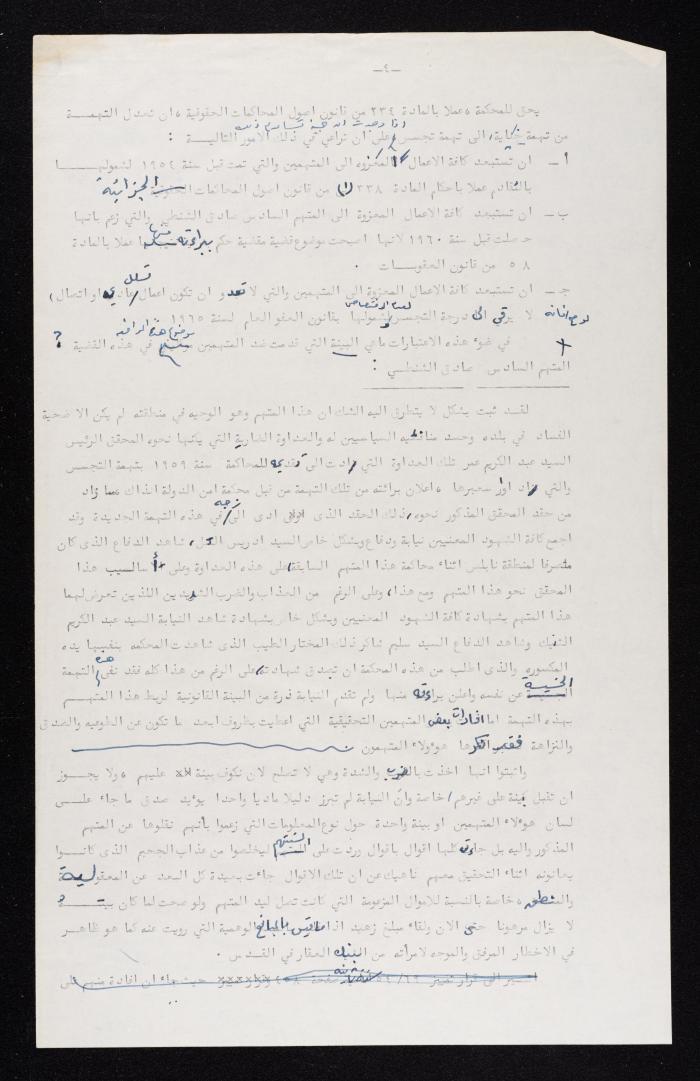 -٤-
يحق للمحكمة ، عملا بالمادة ٢٣٤ من قانون اصول المحاكمات الحقوقية ، ان تعدل التهمة
اذا وجدت
من تهمة جناية، الى تهمة تجسس على ان تراعي في ذلك الامور التالية :
أ - ان تستبعد كافة الاعمال المعزوه الى المتهمين والتي تمت قبل سنة ١٩٥٤ لشمولها
بالتقادم عملا باحكام المادة ٣٣٨ (١) من قانون اصول المحاكمات الجزائية
ب - ان تستبعد كافة الاعمال المعزوة الى المتهم السادس صادق الشنطي والتي زعم بانها
حصلت قبل سنة ١٩٦٠ لانها اصبحت موضوع قضية مقضية حكم ببراءته منها عملا بالمادة
٥٨ من قانون العقوبات .
جـ - ان تستبعد كافة الاعمال المعزوة الى المتهمين والتي لا تعدو ان تكون اعمال تسلل عادي او اتصال)
لا يرقي الى درجة التجسس لشمولها بقانون العفو العام لسنة ١٩٦٥
في ضوء هذه الاعتبارات ماهي البينة التي قدمت ضد المتهمين موضوع هذه الرافعه في هذه القضية ؟
المتهم السادس صادق الشنطي :
لقد ثبت بشكل لا يتطرق اليه الشك ان هذا المتهم وهو الوجيه في منطقته لم يكن الا ضحية
الفساد في بلده وحسد منافسيه السياسيين له والعداوة الضارية التي يكنها نحوه المحقق الرئيس
السيد عبد الكريم عمر تلك العداوة التي زادت الى تقديمه للمحاكمة سنة ١٩٥٩ بتهمة التجسس
والتي زاد اوار سعيرها ، اعلان برائته من تلك التهمة من قبل محكمة امن الدولة انذاك ، مما زاد
من حقد المحقق المذكور نحوه ، ذلك الحقد الذى ادى الى زجه في هذه التهمة الجديدة وقد
اجمع كافة الشهود المعنيين نيابة ودفاع وبشكل خاص السيد ادريس التل ، شاهد الدفاع الذى كان
متصرفا لمنطقة نابلس اثناء محاكمة هذا المتهم السابقة، على هذه العداوة وعلى أساليب هذا
المحقق نحو هذا المتهم ومع هذا، وعلى الرغم من العذاب والضرب الشديدين اللذين تعرض لهما
هذا المتهم بشهادة كافة الشهود المعنيين وبشكل خاص بشهادة شاهد النيابة السيد عبد الكريم
وشاهد الدفاع السيد سليم شاكر ذلك المختار الطيب الذى شاهدت المحكمة بنفسها يده
المكسوره والذى اطلب من هذه المحكمة ان تصدق شهادته، على الرغم من هذا كله فقد نفى هذه التهمة
الخسيسة عن نفسه واعلن براءته منها ولم تقدم النيابة ذرة من البينة القانونية لربط هذا المتهم
بهذه التهمة اما افادات بعض المتهمين التحقيقية التي اعطيت بظروف ابعد ما تكون عن الطوعيه والصدق
والنزاهة فقد انكرها هوءلاء المتهمون
واثبتوا انها اخذت بالضرب والشدة وهي لا تصلح لان تكون بينة xx عليهم ، ولا يجوز
ان تقبل بينة على غيرهم، خاصة وان النيابة لم تبرز دليلا ماديا واحدا يوءيد صدق ما جاء على
لسان هوءلاء المتهمين او بينة واحدة حول نوع المعلومات التي زعموا بأنهم نقلوها عن المتهم
المذكور واليه بل جاءت كلها اقوال باقوال وردت على السنتهم ليخلصوا من عذاب الجحيم الذى كانوا
يعانونه اثناء التحقيق معهم ناهيك عن ان تلك الاقوال جاءت بعيدة كل البعد عن المعقولية
والمنطق ، خاصة بالنسبة للاموال المزعومة التي كانت تصل ليد المتهم ولو صحت لما كان بيته
لا يزال مرهونا حتى الان ولقاء مبلغ زهيد اذا ما قيس بالمبالغ الوهمية التي رويت عنه كما هو ظاهر
في الاخطار المرفق والموجه لامرأته من البنك العقار في القدس .